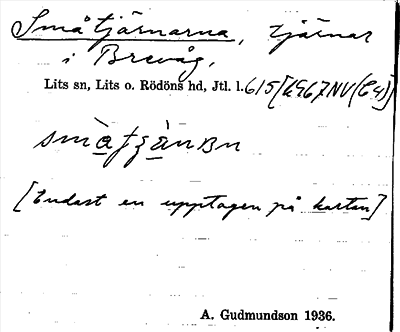 Småtjärnarna, tjärnar
i Brevåg.
Lits sn, Lits o. Rödöns hd, Jtl. l. 615 [
[Endast en upptagen på kartan]
A. Gudmundson 1936.